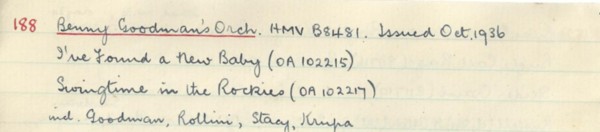 188 Benny Goodman's Orch. HMV B8481. Issued Oct. 1936
I've Found a New Baby (OA 102215)
Swingtime in the Rockies (OA 102217)
incl. Goodman, Rollini, Stacy, Krupa